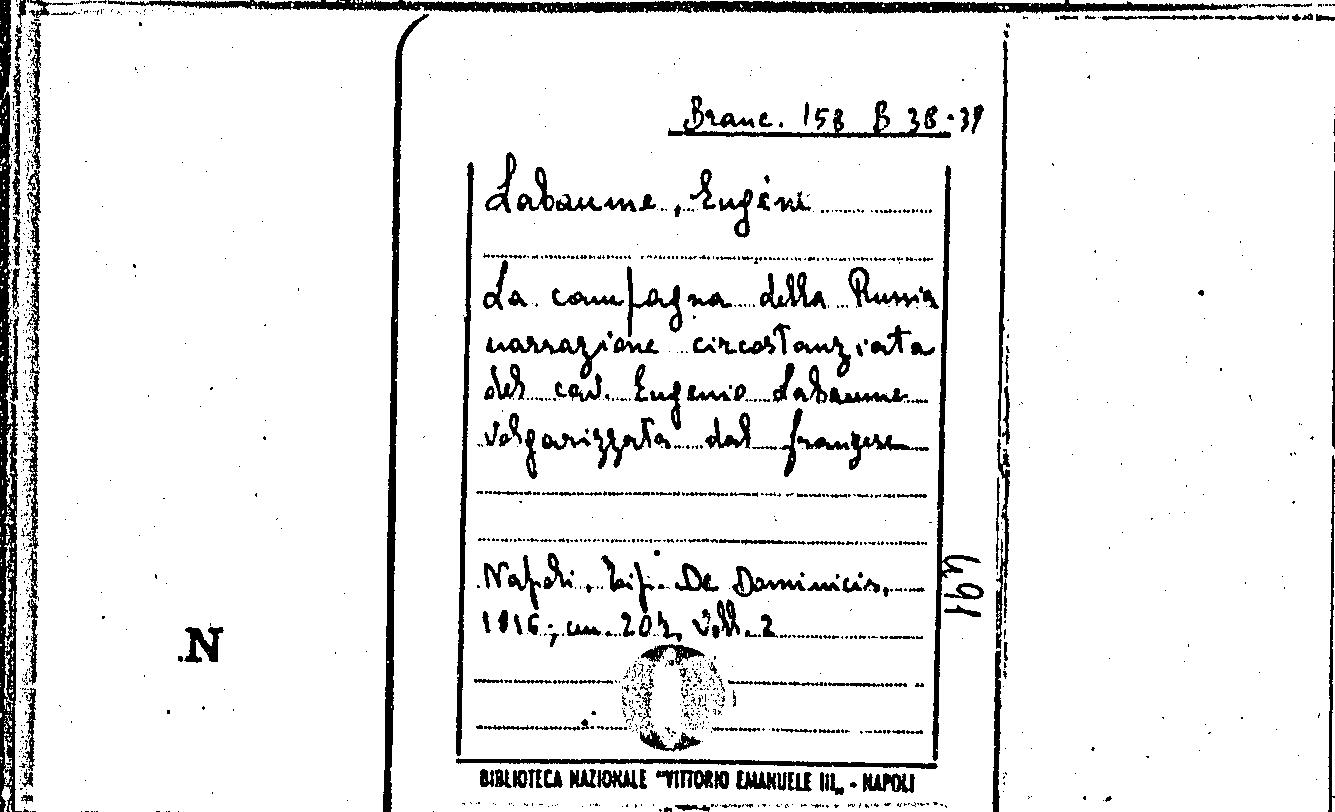 Branc. 158 B 38-39
Labaume, Eugéne
La campagna della Russia
narrazione circostanziata
del cav. Eugenio Labaume
volgarizzata dal franzese
Napoli. Tip. De Dominicis,
1816; cm. 20½ Voll. 2
491
.N
BIBLIOTECA NAZIONALE "VITTORIO EMANUELE III„ - NAPOLI